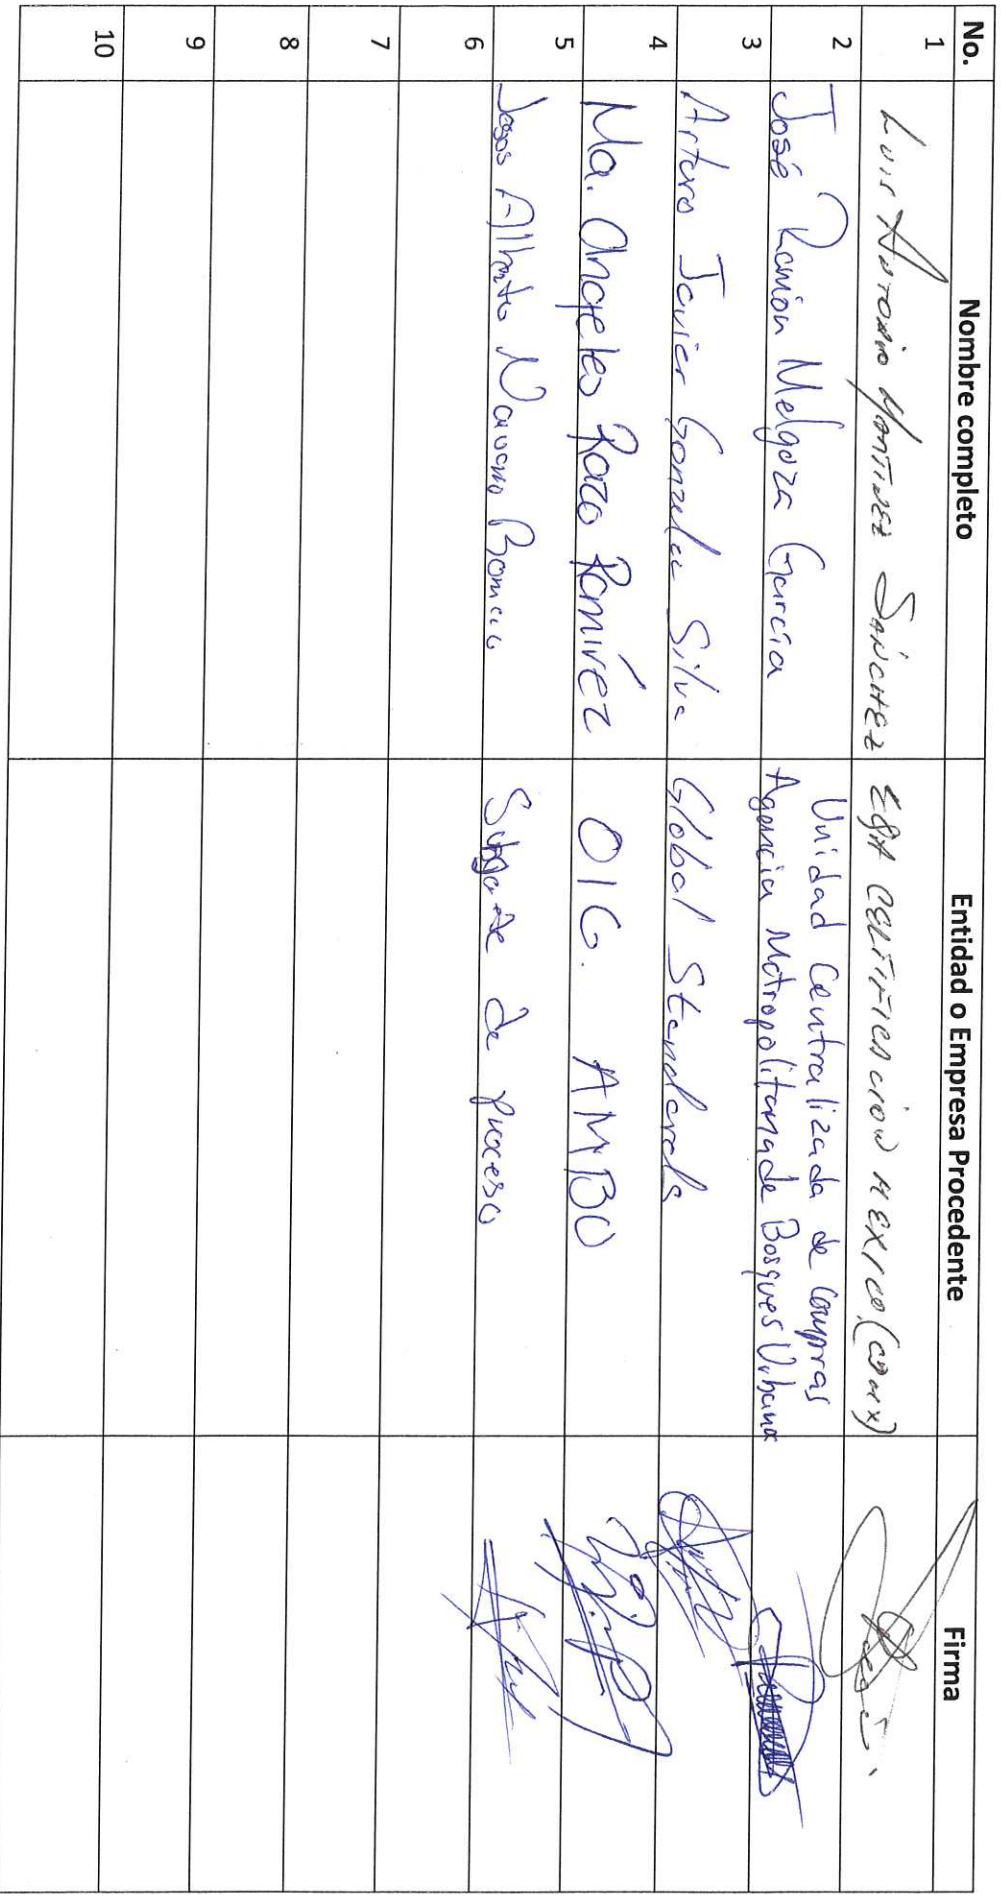 No. Nombre completo Entidad o Empresa Procedente Firma
1 Luis Antonio Martínez Sánchez EQA CERTIFICACIÓN MÉXICO, (CDMX)
2 José Ramón Melgoza García Unidad Centralizada de Compras
Agencia Metropolitana de Bosques Urbanos
3 Arturo Javier Gonzalez Silva Global Standards
4 Ma. Angeles Razo Ramírez OIC. AMBU
5 Jesus Alberto Navarro de proceso
6
7
8
9
10